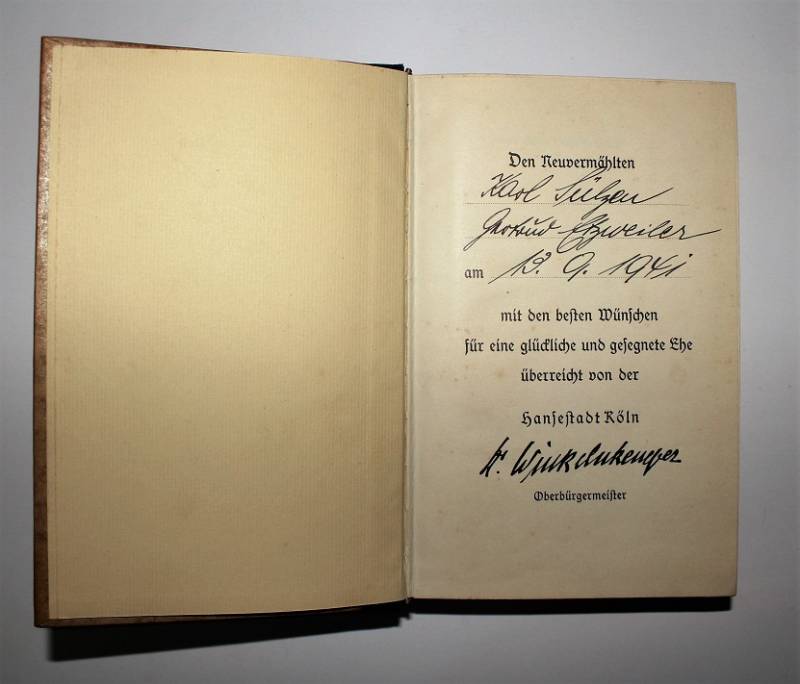 Den Neuvermählten
Karl Sülzen
Gertrud Etzweiler
am 13. 9. 1941
mit den besten Wünschen
für eine glückliche und gesegnete Ehe
überreicht von der
Hansestadt Köln
Dr. Winkelnkemper
Oberbürgermeister